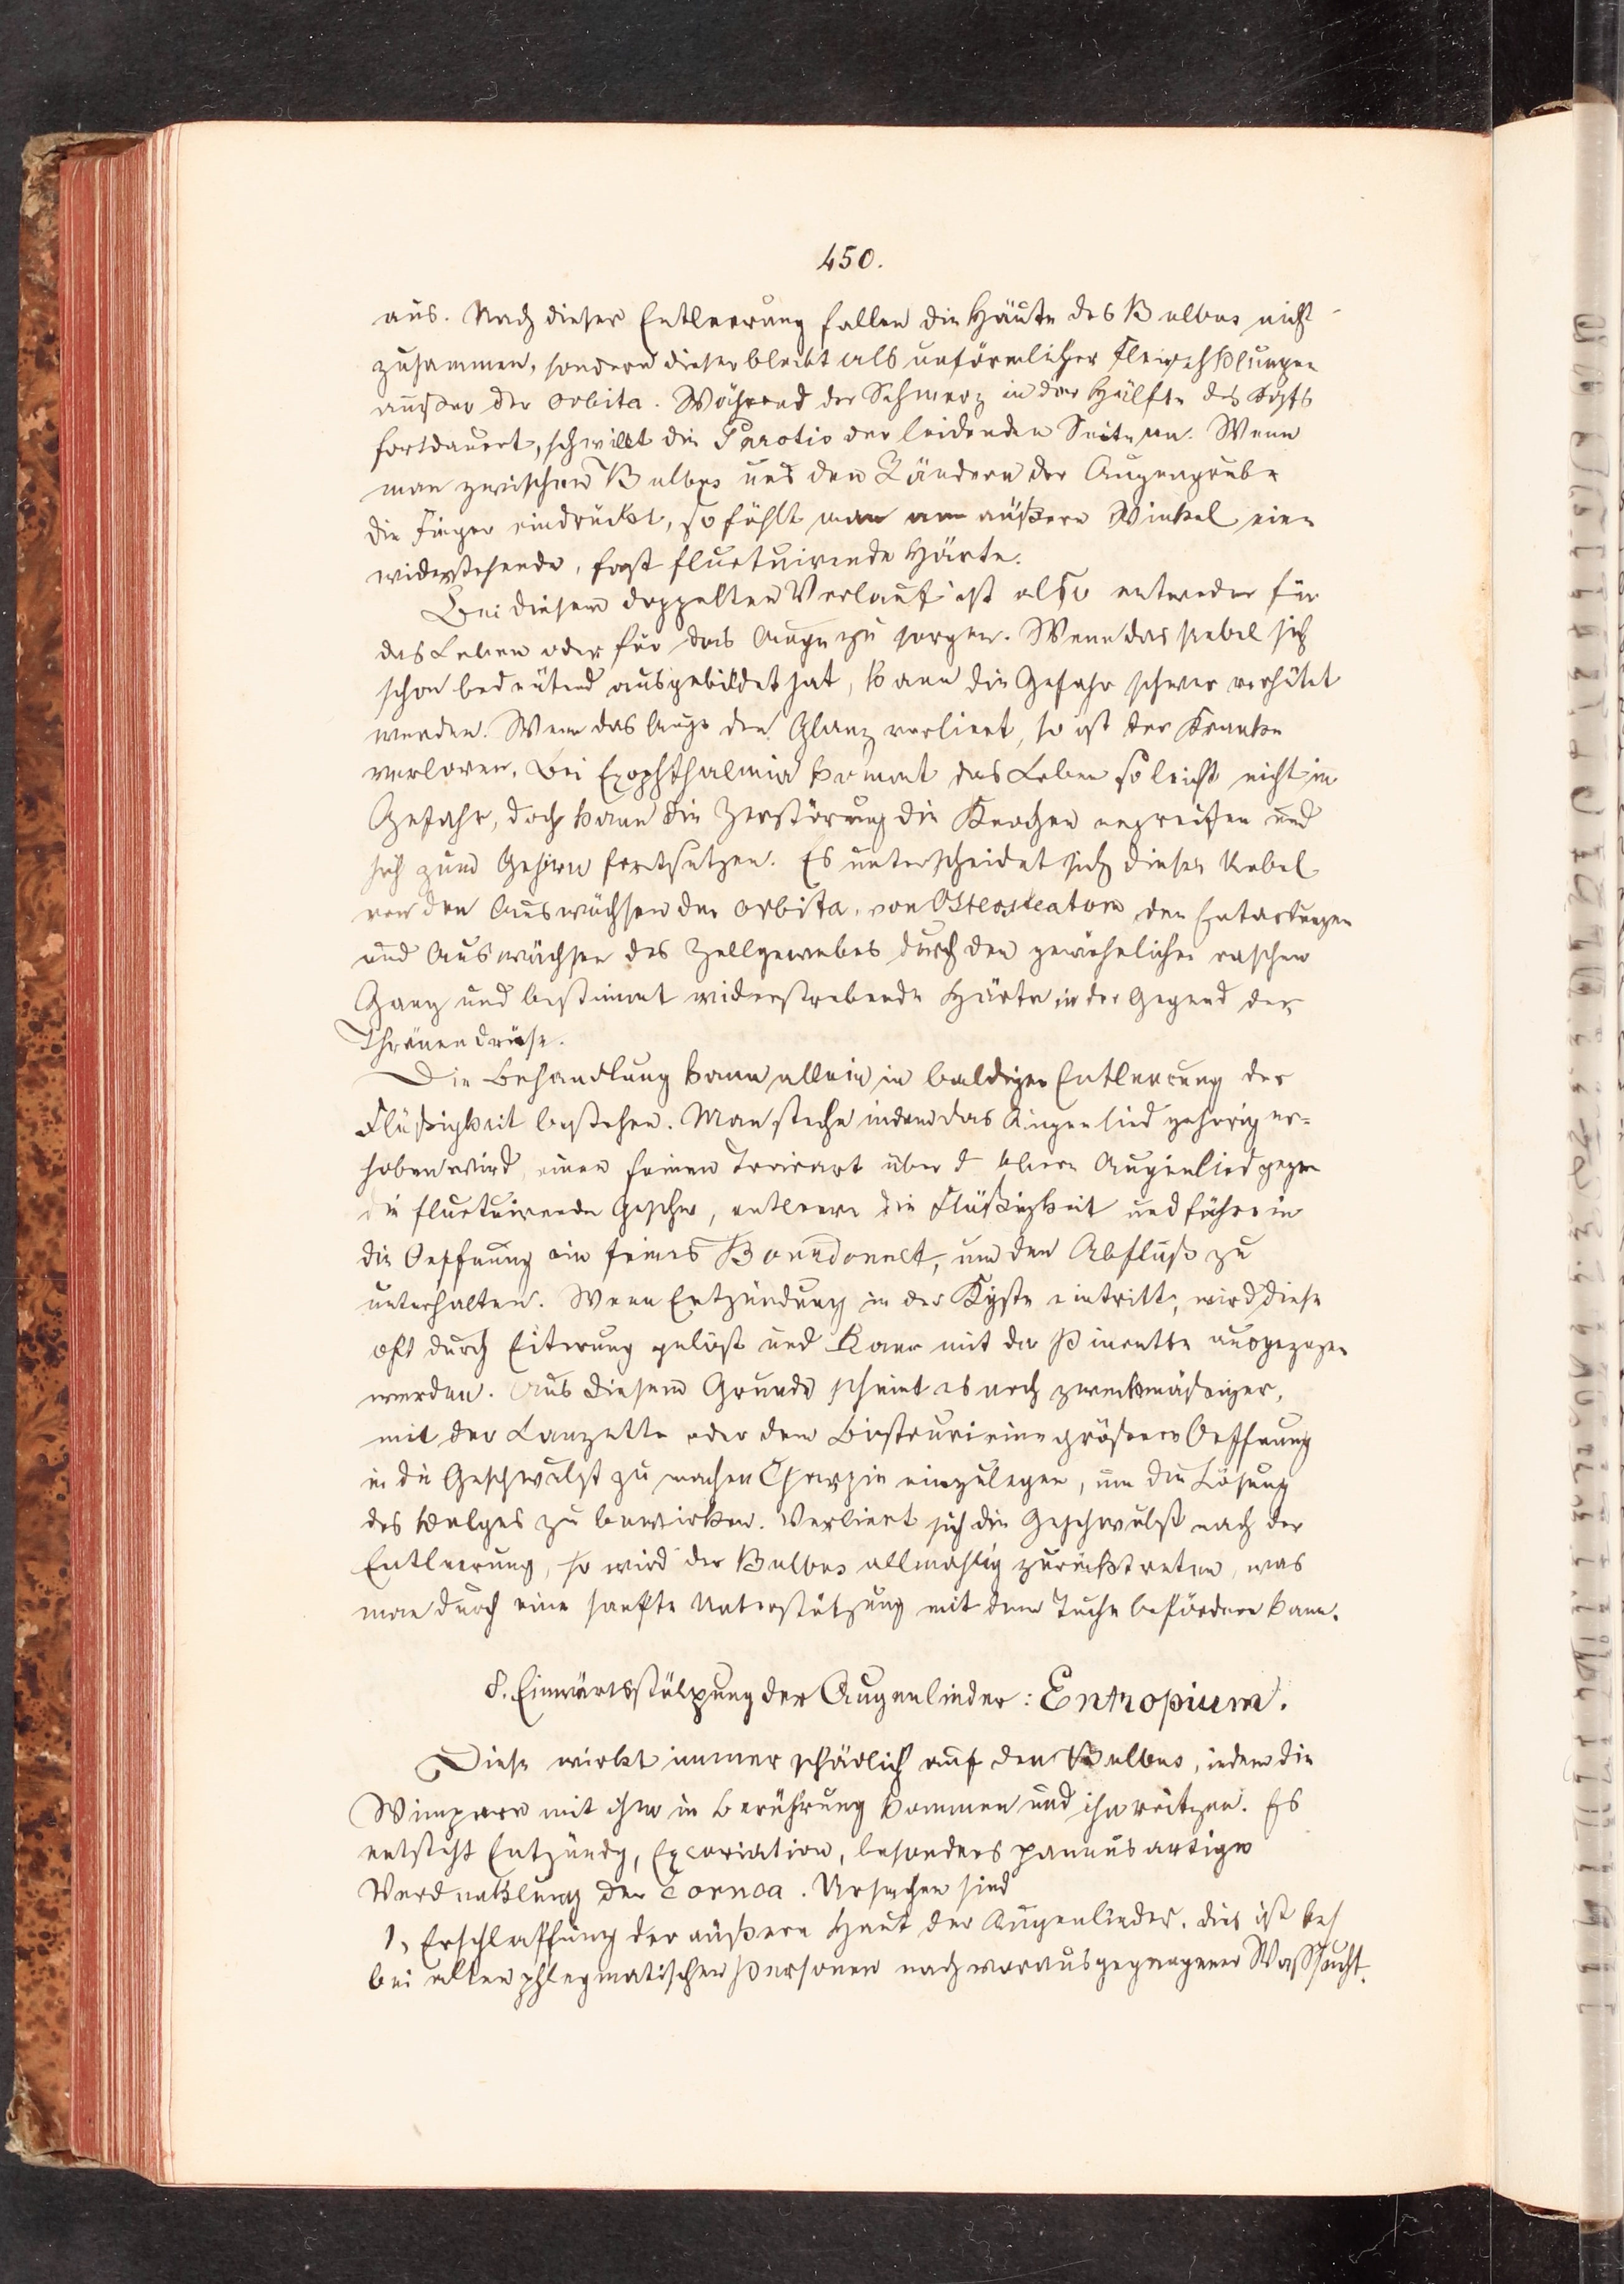 450.
aus. Nach dieser Entleerung fallen die Häute des Bulbus nicht
zusammen, sondern dieser bleibt als unförmlicher Fleischklumpen
außer der Orbita. Während der Schmerz in der Hälfte des Kopfs
fortdauert, schwillt die Parotis der leidenden Seite an. Wenn
man zwischen Bulbus und den Rändern der Augengrube
die Finger eindrückt, so fühlt man am äußern Winkel eine
widerstehende, fast fluctuirende Härte.
Bei diesem doppelten Verlauf ist also entweder für
das Leben oder für das Auge zu sorgen. Wenn das Uebel sich
schon bedeutend ausgebildet hat, kann die Gefahr schwer verhütet
werden. Wenn das Auge den Glanz verliert, so ist der Kranke
verloren. Bei Exophthalmia kommt das Leben so leicht nicht in
Gefahr, doch kann die Zerstörung die Knochen angreifen und
sich zum Gehirn fortsetzen. Es unterscheidet sich dieses Uebel
von den Auswüchsen der Orbita, von Osteosteatom den Entartungen
und Auswüchsen des Zellgewebes durch den gewöhnlichen raschen
Gang und bestimmt widerstrebende Härte in der Gegend der
Thränendrüse.
Die Behandlung kann allein in baldiger Entleerung der
Flüßigkeit bestehen. Man steche indem das Augenlied gehörig er-
hoben wird, einen feinen Troicart über d obere Augenlied gegen
die fluctuirende Geschw, entleere die Flüßigkeit und führe in
die Oeffnung ein feines Bourdonnet, um den Abfluß zu
unterhalten. Wenn Entzündung in der Kyste eintritt, wird diese
oft durch Eiterung gelöst und kann mit der Pincette ausgezogen
werden. Aus diesem Grunde scheint es noch zweckmäßiger,
mit der Lanzette oder dem Bistouri eine größere Oeffnung
in die Geschwulst zu machen Charpie einzulegen, um die Lösung
des Balges zu bewirken. Verliert sich die Geschwulst nach der
Entleerung, so wird der Bulbus allmählig zurücktreten, was
man durch eine sanfte Unterstützung mit dem Tuche befördern kann.
8. Einwärtsstülpung der Augenlieder: Entropium.
Diese wirkt immer schädlich auf den Bulbus, indem die
Wimpern mit ihm in Berührung kommen und ihn reitzen. Es
entsteht Entzündg, Excoriation, besonders pannusartige
Verdunklung der Cornea. Ursachen sind
1, Erschlaffung der äußern Haut der Augenlieder. dies ist bes
bei alten phlegmatischen Personen nach vorausgegangener Wasssucht.